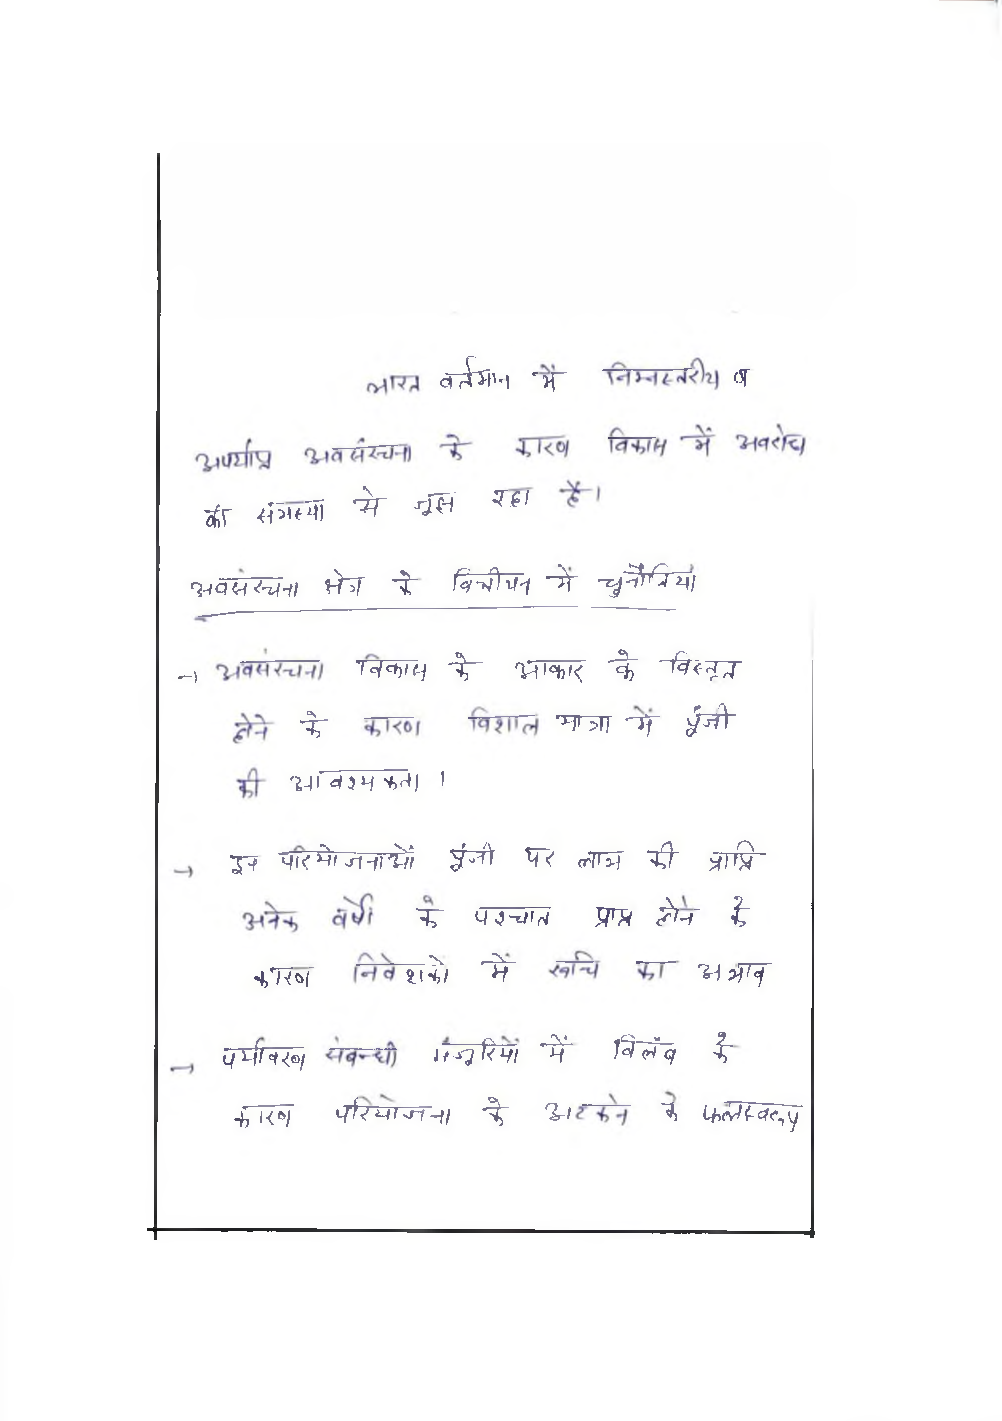 भारत वर्तमान में निम्नस्तरीय व
अपर्याप्त अवसंरचना के कारण विकास में अवरोध
की समस्या से जूझ रहा है।
अवसंरचना क्षेत्र के वित्तीयन में चुनौतियां
→ अवसंरचना विकास के आकार के विस्तृत
होने के कारण विशाल मात्रा में पूंजी
की आवश्यकता।
→ इन परियोजनाओं पूंजी पर लाभ की प्राप्ति
अनेक वर्षों के पश्चात प्राप्त होने के
कारण निवेशकों में रूचि का अभाव
→ पर्यावरण संबन्धी मंजूरियों में विलंब के
कारण परियोजना के अटकने के फलस्वरूप